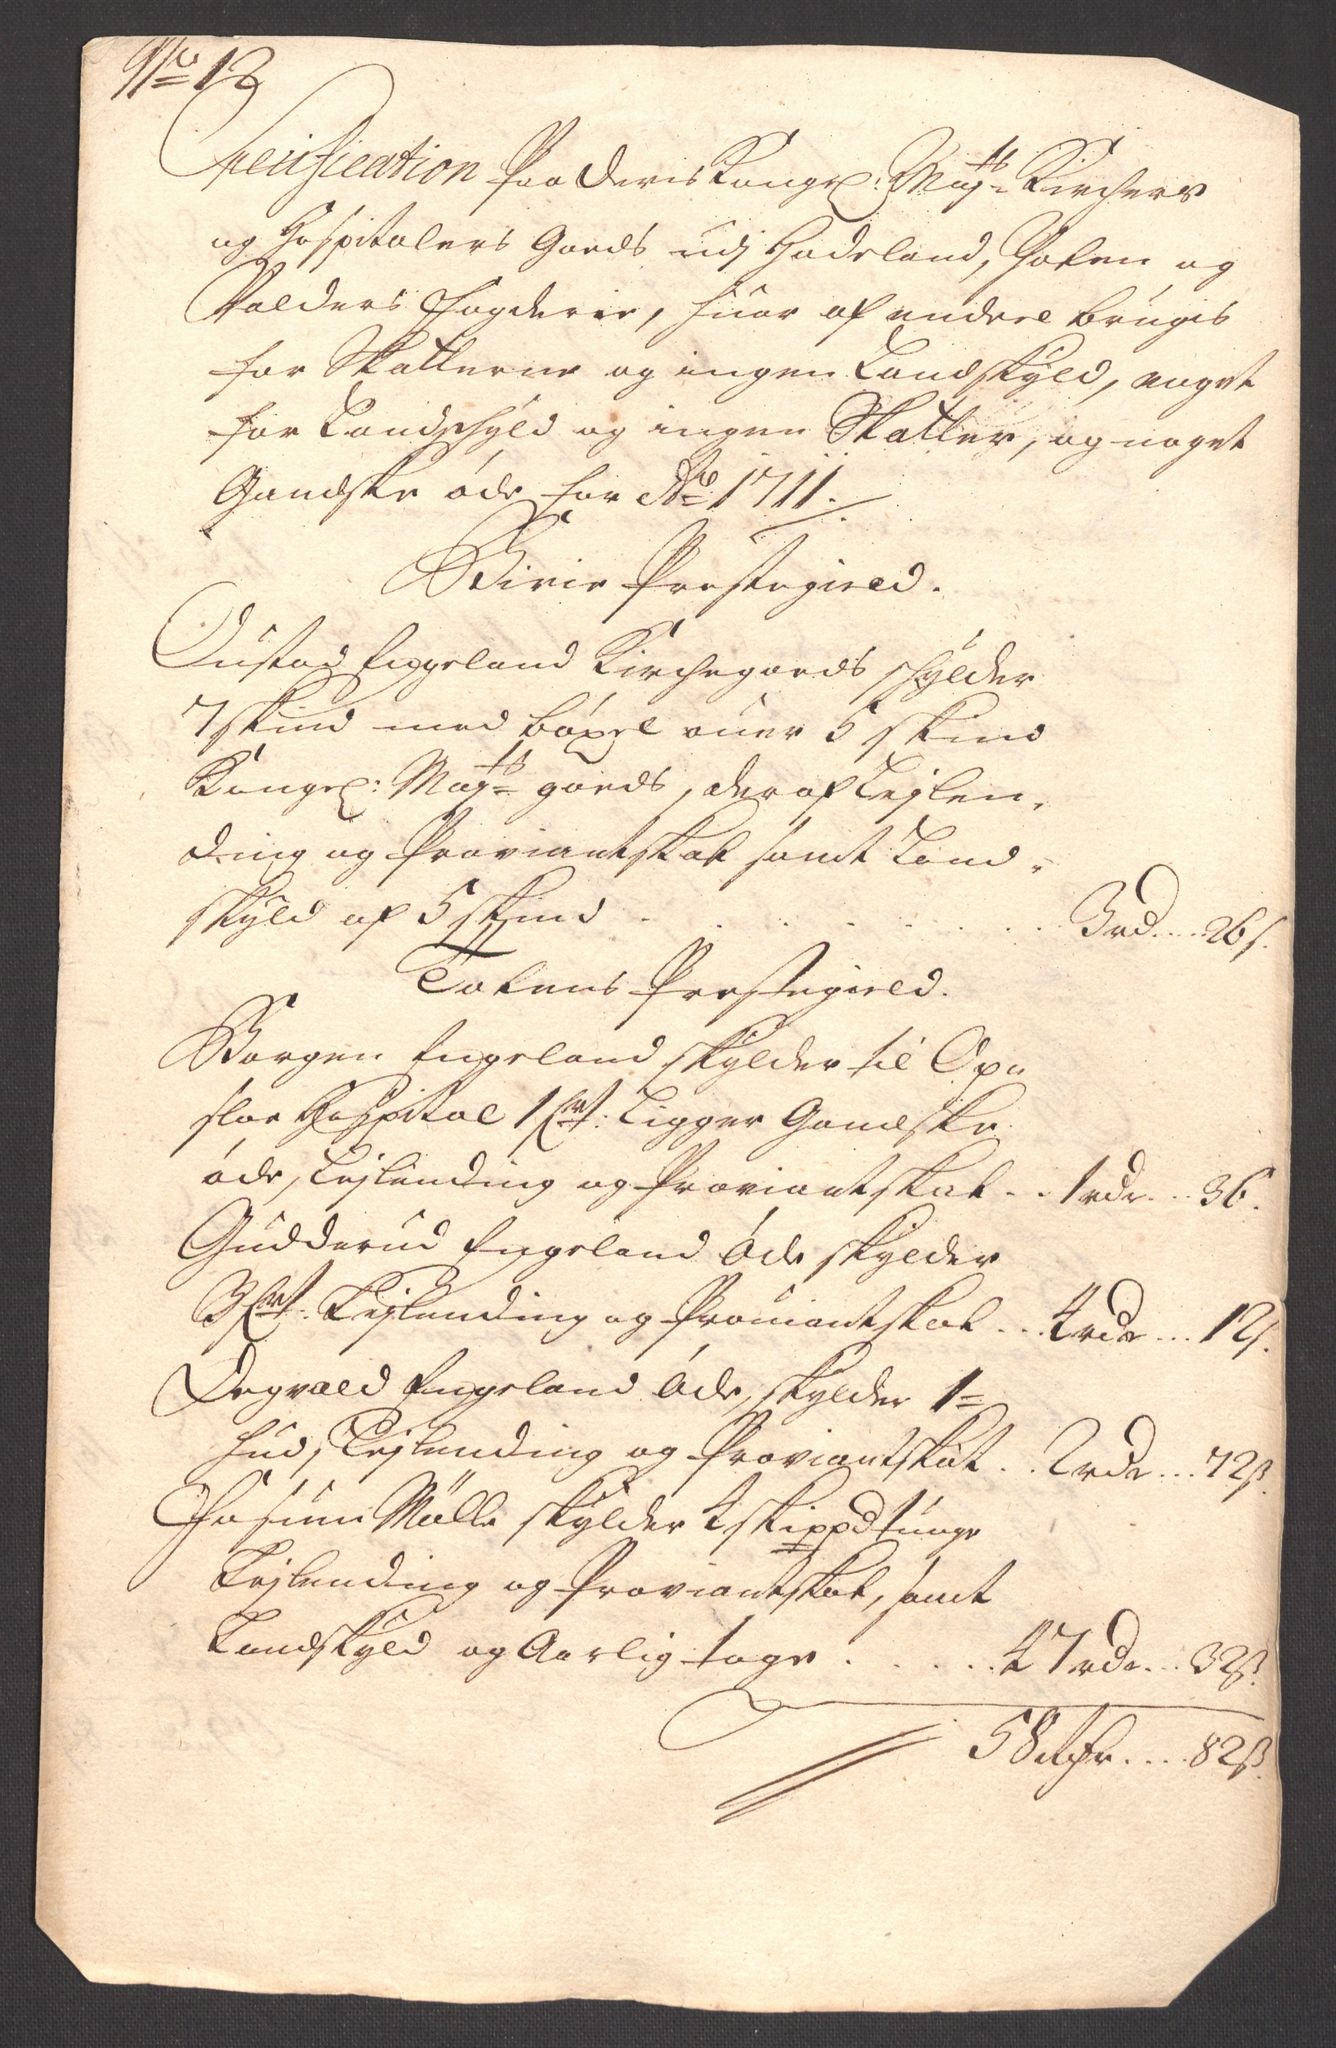 No 12
Specification Paa Deris Kongel: Mayts Kirchers
og Hospitalers Gods udj Hadeland, Toten og
Valders Fogderie, huor af endeel bruges
for Skatterne og ingen Landskyld, noget
for Landskyld og ingen Skatter, og noget
Gandske øde for Ao 1711.
Birie Prestegield.
Oustad Engeland Kirchegods skylder
7 skind med bøxel ouer 5 skind
Kongel: Mayts gods, der af Lejlen,
ding og Proviantskat samt Land-
skyld af 5 skind . . . . . . . . 3 rd... 26 s.
Totens Prestegield.
Borgen Engeland skylder til Op-
sloe Hospital 1 Qrt: Ligger Gandske
øde, Lejlending og Proviantskat . . 1 rdr... 36.
Gudderud Engeland øde skylder
3 Qrt: Lejlending og Prouiantskat . . 4 rdr... 12 s.
Degvold Engeland øde, skylder 1=
hud, Lejlending og Proviantskat . . 2 rdr... 72 s.
Fossum Mølle skylder 4 skippd tunge
Lejlending og Proviantskat, samt
Landskyld og Aarlig tage . . . . . 47 rdr... 32 s.
58 Rdr.... 82 s.